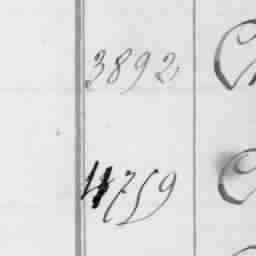 3892
4759